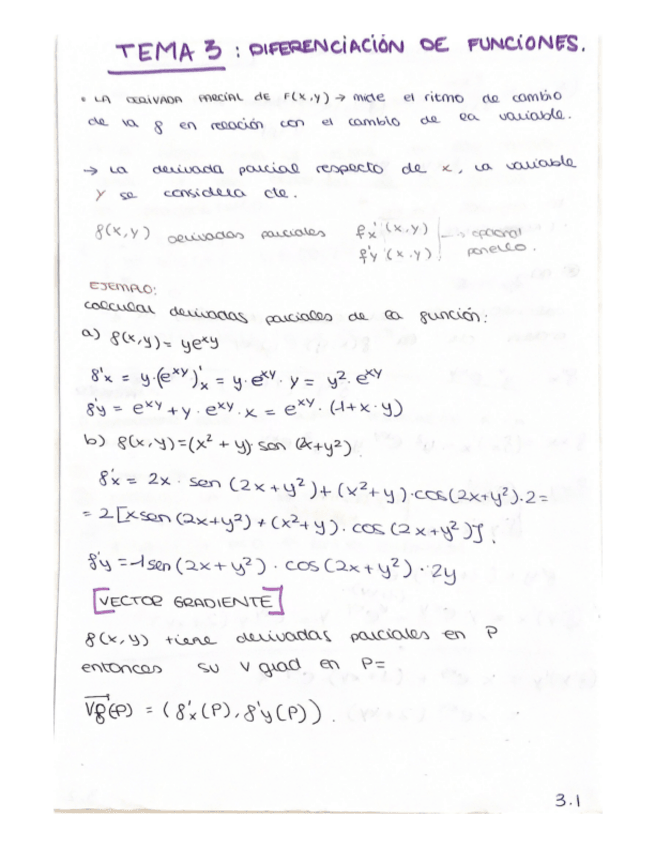 TEMA 3 : DIFERENCIACIÓN DE FUNCIONES.
• LA DERIVADA PARCIAL DE F(x,y) → mide el ritmo de cambio
de la f en relación con el cambio de la variable.
→ La derivada parcial respecto de x, la variable
y se considera cte.
f(x,y) derivadas parciales f'x (x,y)
f'y (x,y) opcional
ponerlo.
EJEMPLO:
calcular derivadas parciales de la función:
a) f(x,y) = ye^xy
f'x = y·(e^xy)'x = y·e^xy · y = y²·e^xy
f'y = e^xy + y·e^xy·x = e^xy · (1+x·y)
b) f(x,y)=(x² + y) sen (2x+y²)
f'x = 2x · sen (2x+y²)+(x²+y)·cos(2x+y²)·2=
= 2[xsen(2x+y²)+(x²+y)·cos(2x+y²)].
f'y =1sen(2x+y²)·cos(2x+y²)·2y
[VECTOR GRADIENTE]
f(x,y) tiene derivadas parciales en P
entonces su v grad en P=
∇f(P) = (f'x(P), f'y(P)).
3.1